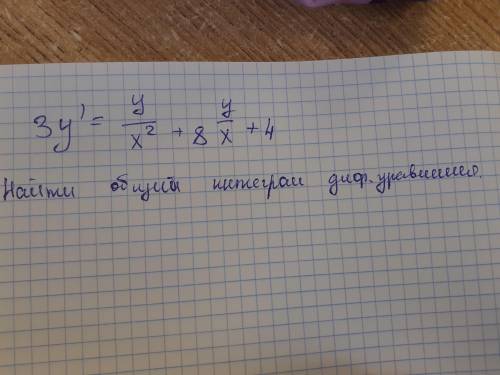 3y' = y/x² + 8 y/x + 4
Найти общий интеграл диф. уравнения.